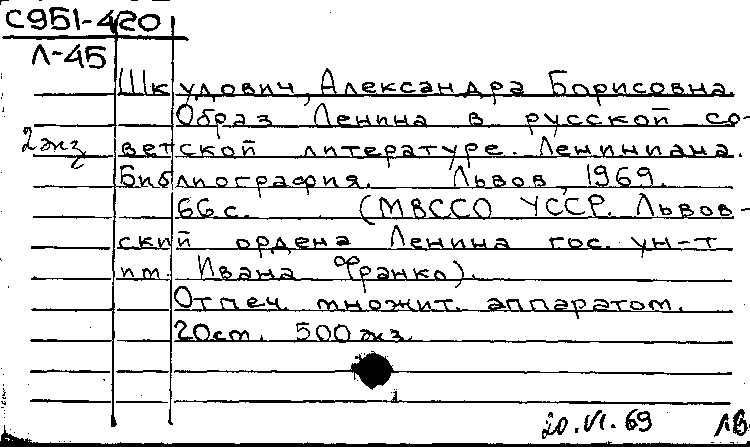 С951-420
Л-45
Шкудович, Александра Борисовна.
Образ Ленина в русской со-
2 экз ветской литературе. Лениниана.
Библиография. Львов, 1969.
66 с. (МВССО УССР. Львов-
ский ордена Ленина гос. ун-т
им. Ивана Франко).
Отпеч. множит. аппаратом.
20 см. 500 экз.
20.VI.69 ЛВ